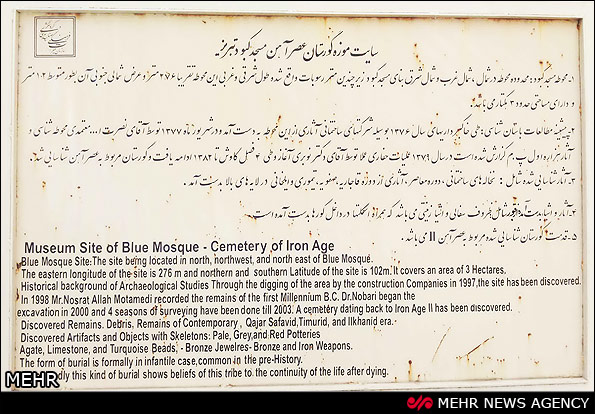 سایت موزه گورستان عصر آهن مسجد کبود تبریز
۱- محوطه مسجد کبود: محدوده محوطه در شمال، شمال غرب و شمال شرق بنای مسجد کبود و زیر چندین متر رسوبات واقع شده طول شرقی و غربی این محوطه تقریبا ۲۷۶ متر و عرض شمالی جنوبی آن بطور متوسط ۱۰۲ متر
و دارای مساحتی حدود ۳ هکتار می باشد.
۲- پیشینه مطالعات باستان شناسی: طی خاکبرداریهای سال ۱۳۷۶ بوسیله شرکتهای ساختمانی آثاری از این محوطه به دست آمد و در شهریور ماه ۱۳۷۷ توسط آقای نصرت ا... معتمدی محوطه شناسی و
آثار هزاره اول پ.م گزارش شده است در سال ۱۳۷۹ عملیات حفاری عملا توسط آقای دکتر نوبری آغاز و طی ۴ فصل کاوش تا ۱۳۸۲ ادامه یافت و گورستان مربوط به عصر آهن شناسایی شد.
۳- آثار شناسایی شده شامل: نخاله های ساختمانی، دوره معاصر، آثاری از دوره قاجاریه، صفویه، تیموری و ایلخانی در لایه های بالا بدست آمد.
۴- آثار و اشیاء بدست آمده شامل ظروف سفالی و اشیا زینتی می باشد که همراه اسکلتها در داخل گورها بدست آمده است.
۵- قدمت گورستان شناسایی شده مربوط به عصر آهن II می باشد.
Museum Site of Blue Mosque - Cemetery of Iron Age
Blue Mosque Site:The site being located in north, northwest, and north east of Blue Mosque.
The eastern longitude of the site is 276 m and northern and southern Latitude of the site is 102m. It covers an area of 3 Hectares.
Historical background of Archaeological Studies Through the digging of the area by the construction Companies in 1997,the site has been discovered.
In 1998 Mr.Nosrat Allah Motamedi recorded the remains of the first Millennium B.C. Dr.Nobari began the
excavation in 2000 and 4 seasons of surveying have been done till 2003. A cemetery dating back to Iron Age II has been discovered.
Discovered Remains. Debris, Remains of Contemporary , Qajar Safavid,Timurid, and Ilkhanid era.
Discovered Artifacts and Objects with Skeletons: Pale, Grey,and Red Potteries
Agate, Limestone, and Turquoise Beads, - Bronze Jewelres- Bronze and Iron Weapons.
The form of burial is formally in infantile case,common in the pre-History.
this kind of burial shows beliefs of this tribe to the continuity of the life after dying.
MEHR
MEHR NEWS AGENCY